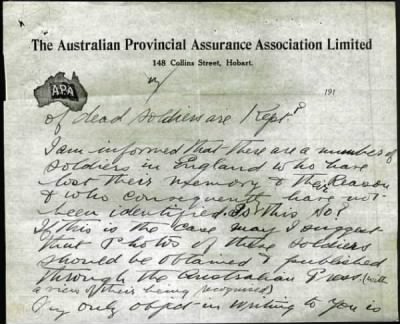 The Australian Provincial Assurance Association Limited
148 Collins Street, Hobart.
191
APA
of dead soldiers are Kept?
I am informed that there are a number of
soldiers in England who have
lost their memory & their Reason
& who consequently have not
been identified. Is this so?
If this is the case may I suggest
that Photos of these soldiers
should be obtained & published
through the Australian Press. (with
a view of their being recognised)
My only object in writing to you is